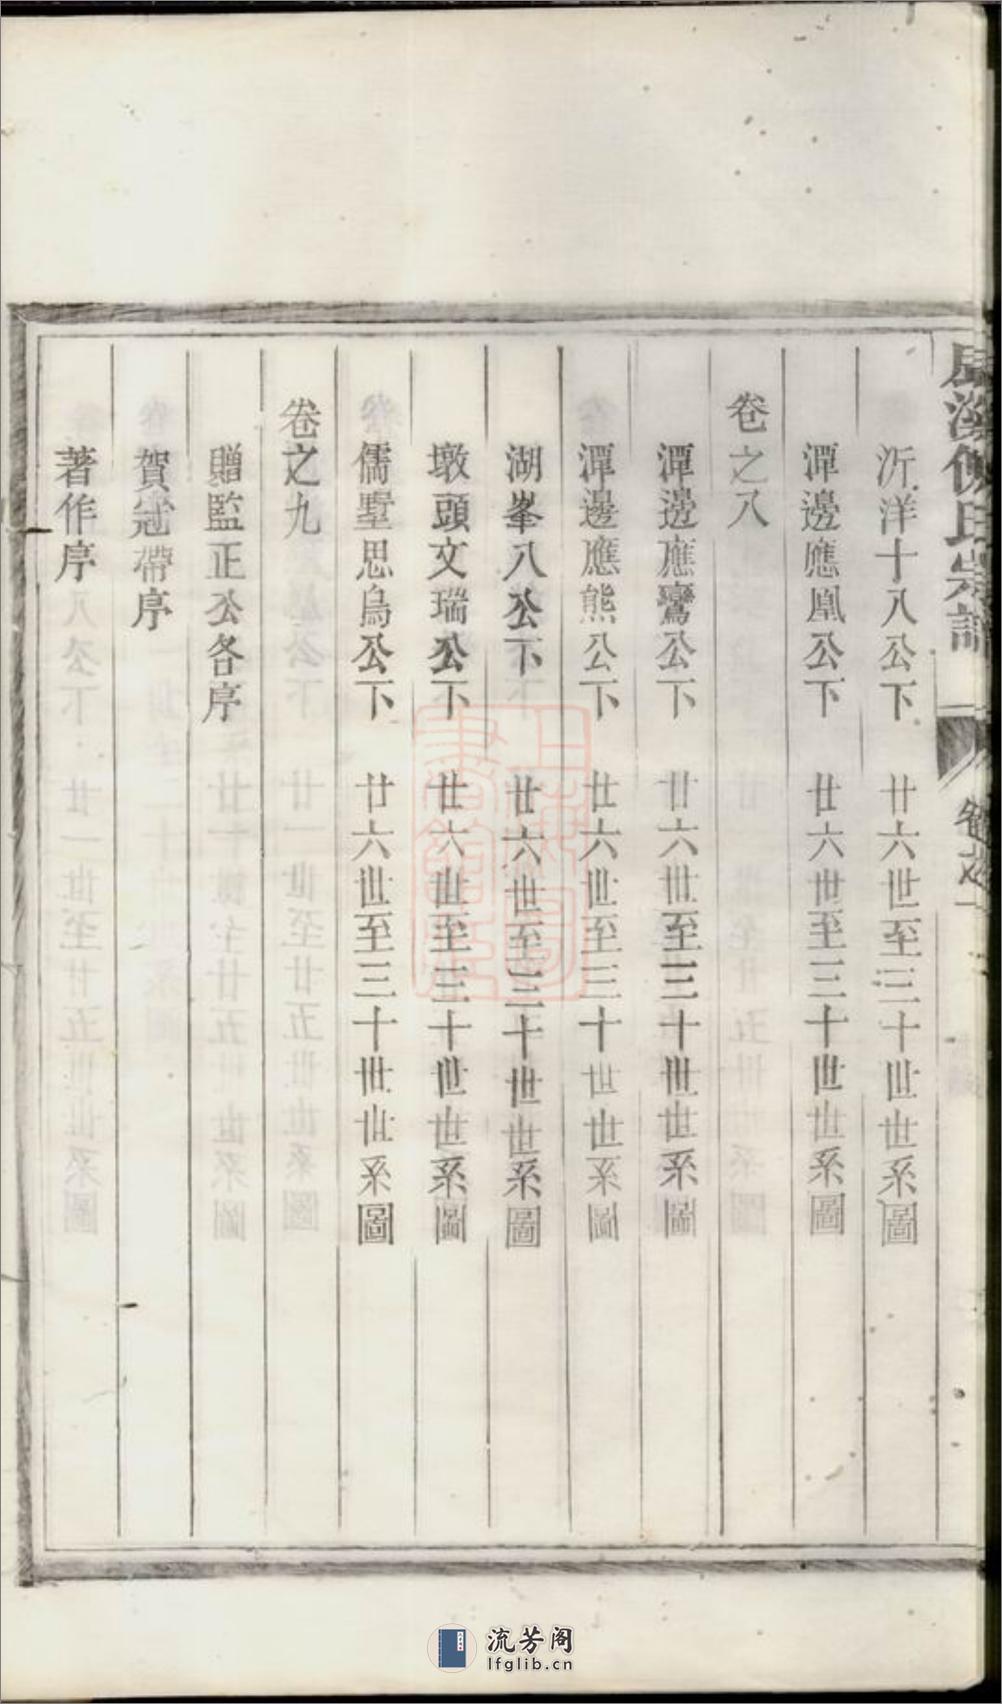 沂洋十八公下　廿六世至三十世世系圖
潭邊應凰公下　廿六世至三十世世系圖
卷之八
潭邊應鸞公下　廿六世至三十世世系圖
潭邊應熊公下　廿六世至三十世世系圖
湖峯八公下　廿六世至三十世世系圖
墩頭文瑞公下　廿六世至三十世世系圖
儒墅思烏公下　廿六世至三十世世系圖
卷之九
贈監正公各序
賀冠帶序
著作序
流芳阁
lfglib.cn